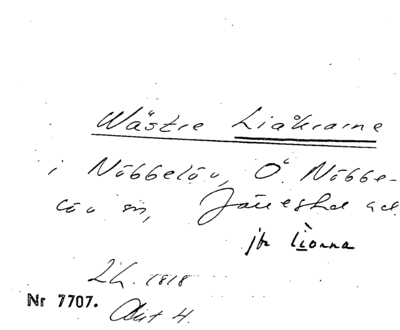 Wästre Liåkrarne
i Nöbbelöv, Ö. Nöbbe-
löv sn, Järrestad hd
jfr Liorna
LH. 1818
Nr 7707. Akt 4.